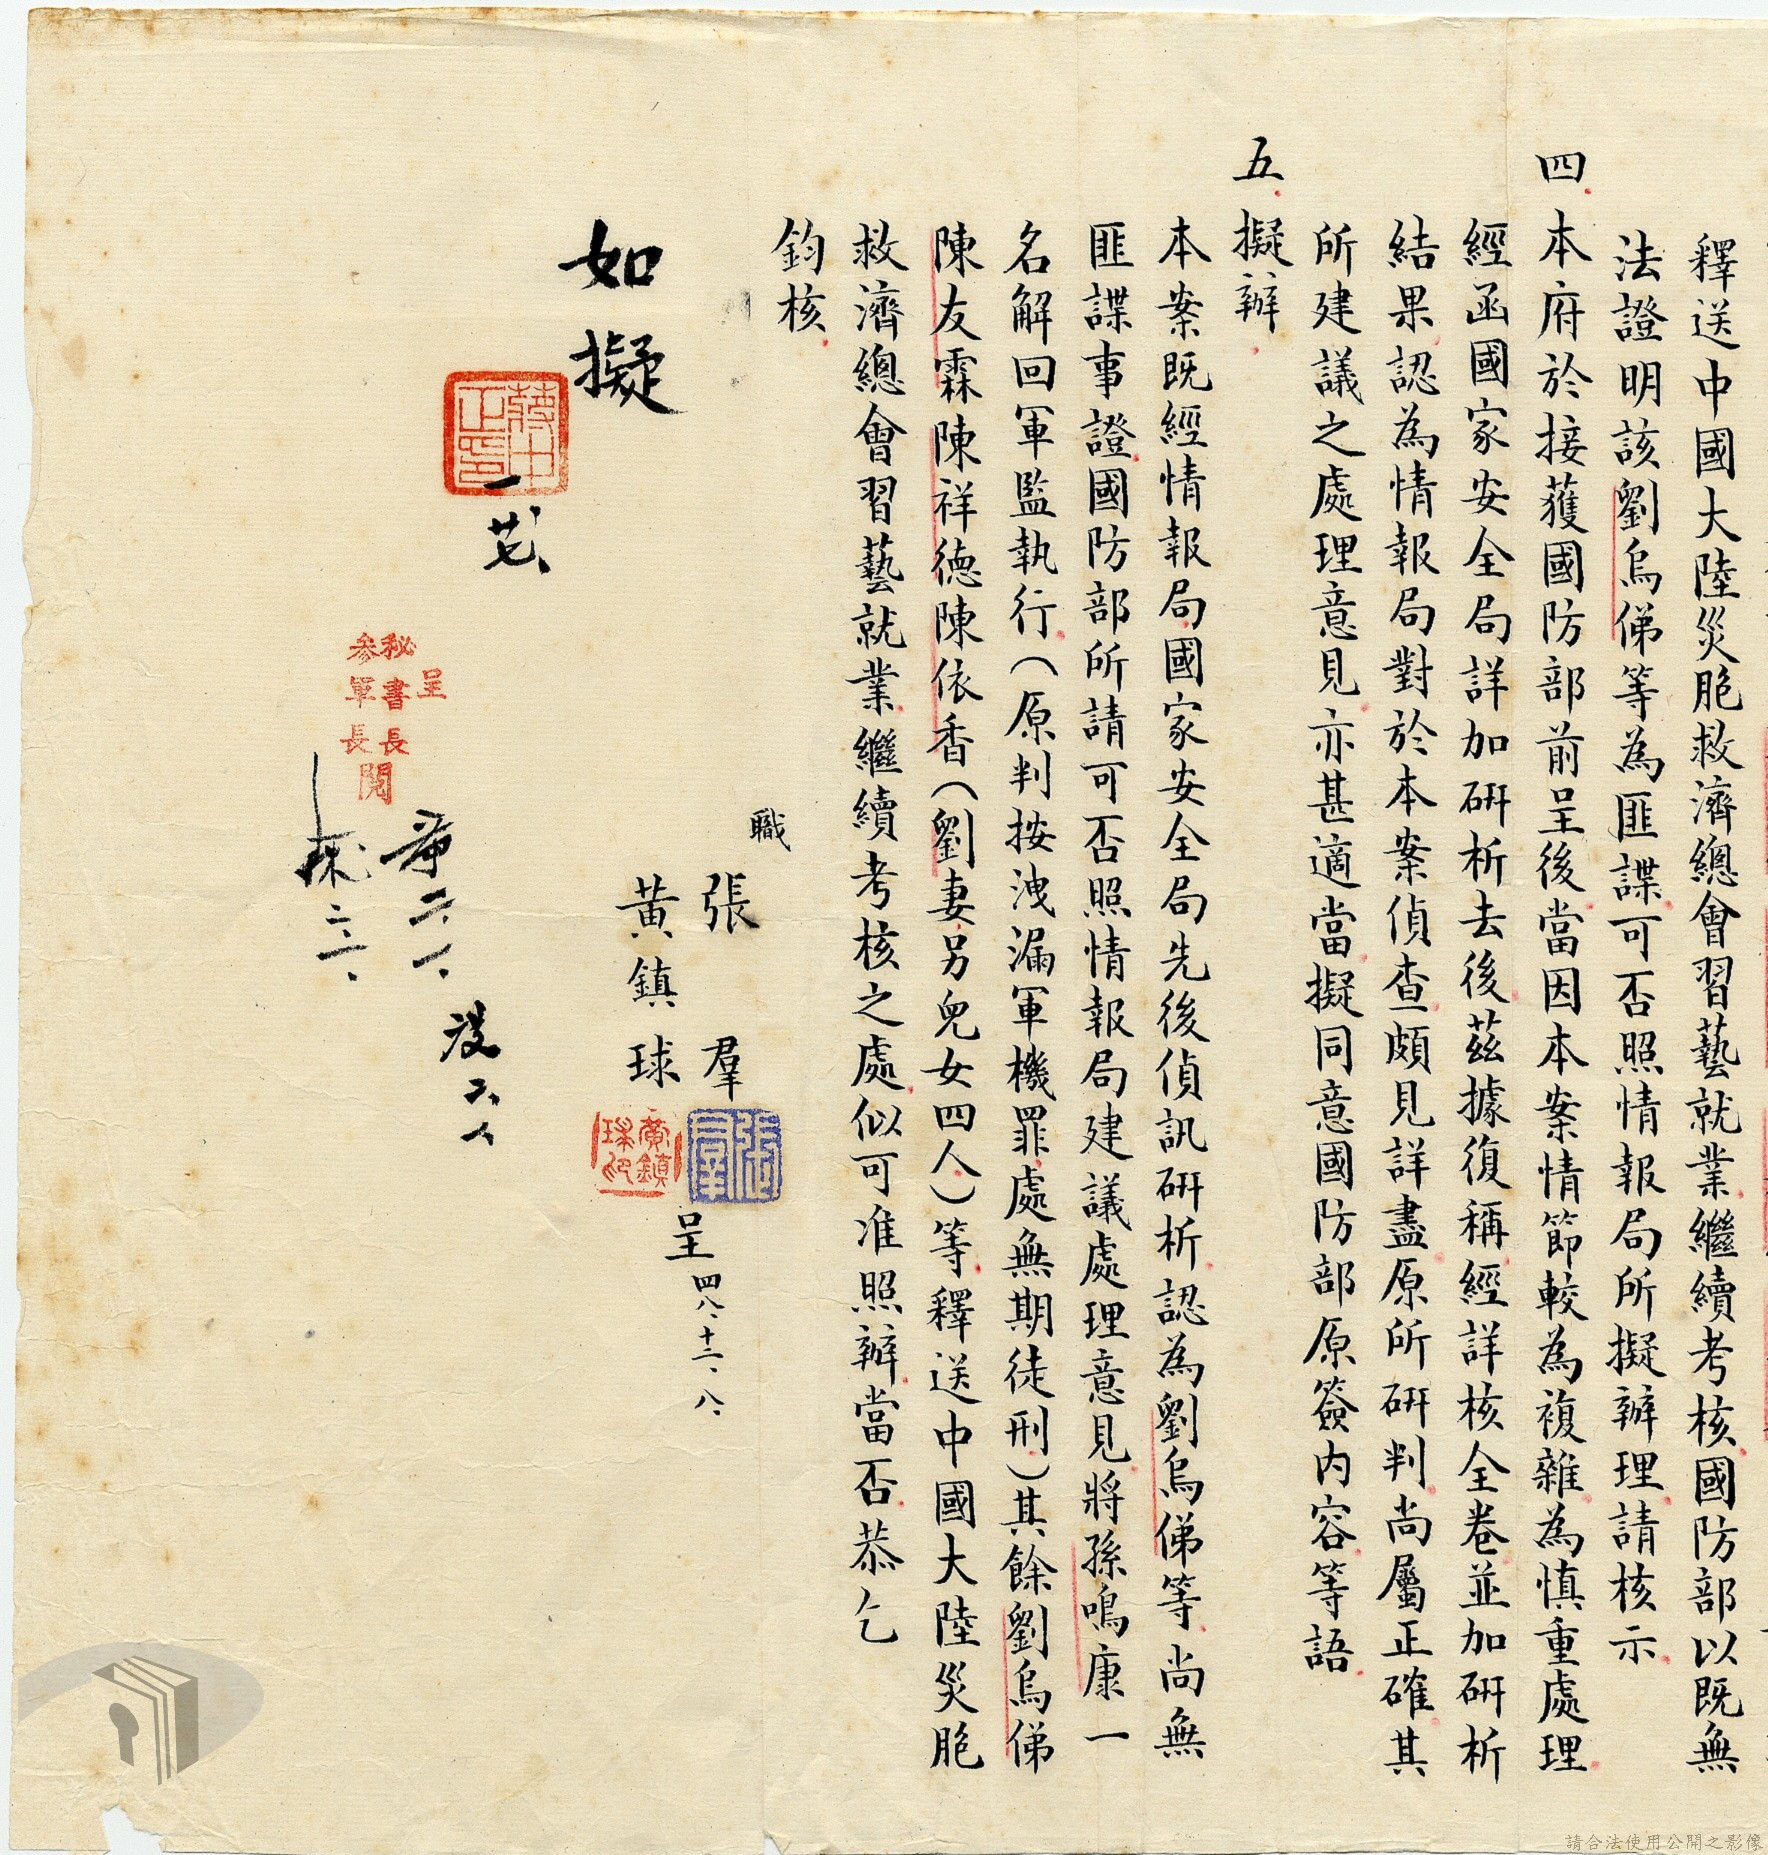 釋送中國大陸災胞救濟總會習藝就業繼續考核國防部以既無
法證明該劉烏俤等為匪諜可否照情報局所擬辦理請核示
四、本府於接獲國防部前呈後當因本案情節較為複雜為慎重處理
經函國家安全局詳加研析去後茲據復稱經詳核全卷並加研析
結果認為情報局對於本案偵查頗見詳盡原所研判尚屬正確其
所建議之處理意見亦甚適當擬同意國防部原簽內容等語
五、擬辦、
本案既經情報局國家安全局先後偵訊研析認為劉烏俤等尚無
匪諜事證國防部所請可否照情報局建議處理意見將孫鳴康一
名解回軍監執行(原判按洩漏軍機罪處無期徒刑)其餘劉烏俤
陳友霖陳祥德陳依香(劉妻另兒女四人)等釋送中國大陸災胞
救濟總會習藝就業繼續考核之處似可准照辦當否恭乞
鈞核
職
張羣
張羣
黃鎮球
黃鎮球印
呈 四八、十二、八、
如擬
蔣中正印
一、廿七、
呈
秘書長
參軍長
閱
二、一、
二、一、